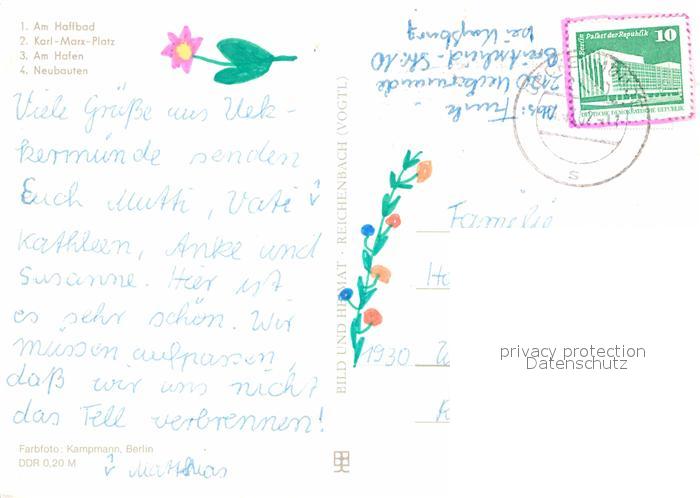 1. Am Haffbad
2. Karl-Marx-Platz
3. Am Hafen
4. Neubauten
Viele Grüße aus Uek-
kermünde senden
Euch Mutti, Vati
Kathleen, Anke und
Susanne. Hier ist
es sehr schön. Wir
müssen aufpassen,
daß wir uns nicht
das Fell verbrennen!
Matthias
Farbfoto: Kampmann, Berlin
DDR 0,20 M
BILD UND HEIMAT · REICHENBACH (VOGTL)
Abs.: Funk
2120 Ueckermünde
Berlin Palast der Republik 10
DEUTSCHE DEMOKRATISCHE REPUBLIK
s
Familie
Ha
1930
privacy protection
Datenschutz